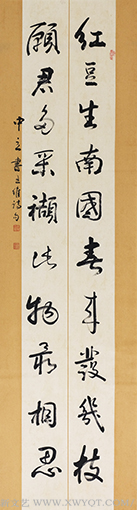 红豆生南國春来發幾枝
願君多采擷此物最相思
中之書王維詩句
WWW.XWYOT.COM